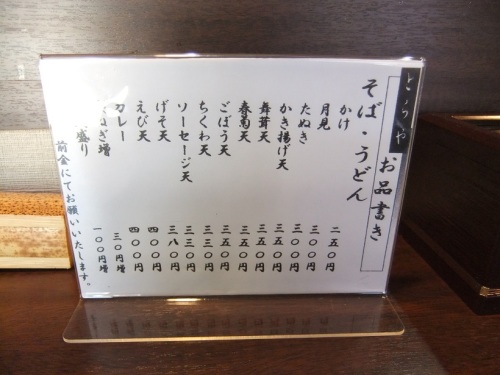 とうや
お品書き
そば・うどん
かけ 二五〇円
月見 三〇〇円
たぬき 三〇〇円
かき揚げ天 三五〇円
舞茸天 三五〇円
春菊天 三五〇円
ごぼう天 三五〇円
ちくわ天 三三〇円
ソーセージ天 三三〇円
げそ天 三八〇円
えび天 四〇〇円
カレー 四〇〇円
ぎ増 三〇円増
盛り 一〇〇円増
前金にてお願いいたします。